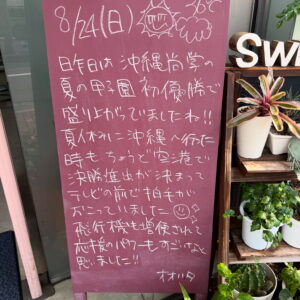 8/24(日) 36℃
昨日は沖縄尚学の
夏の甲子園初優勝で
盛り上がっていましたね!!
夏休みに沖縄へ行った
時もちょうど空港で
決勝進出が決まって
テレビの前で拍手が
おこっていました
飛行機も遅延されて
応援のパワーもすごいなと
思いました!!
オオハタ
SW